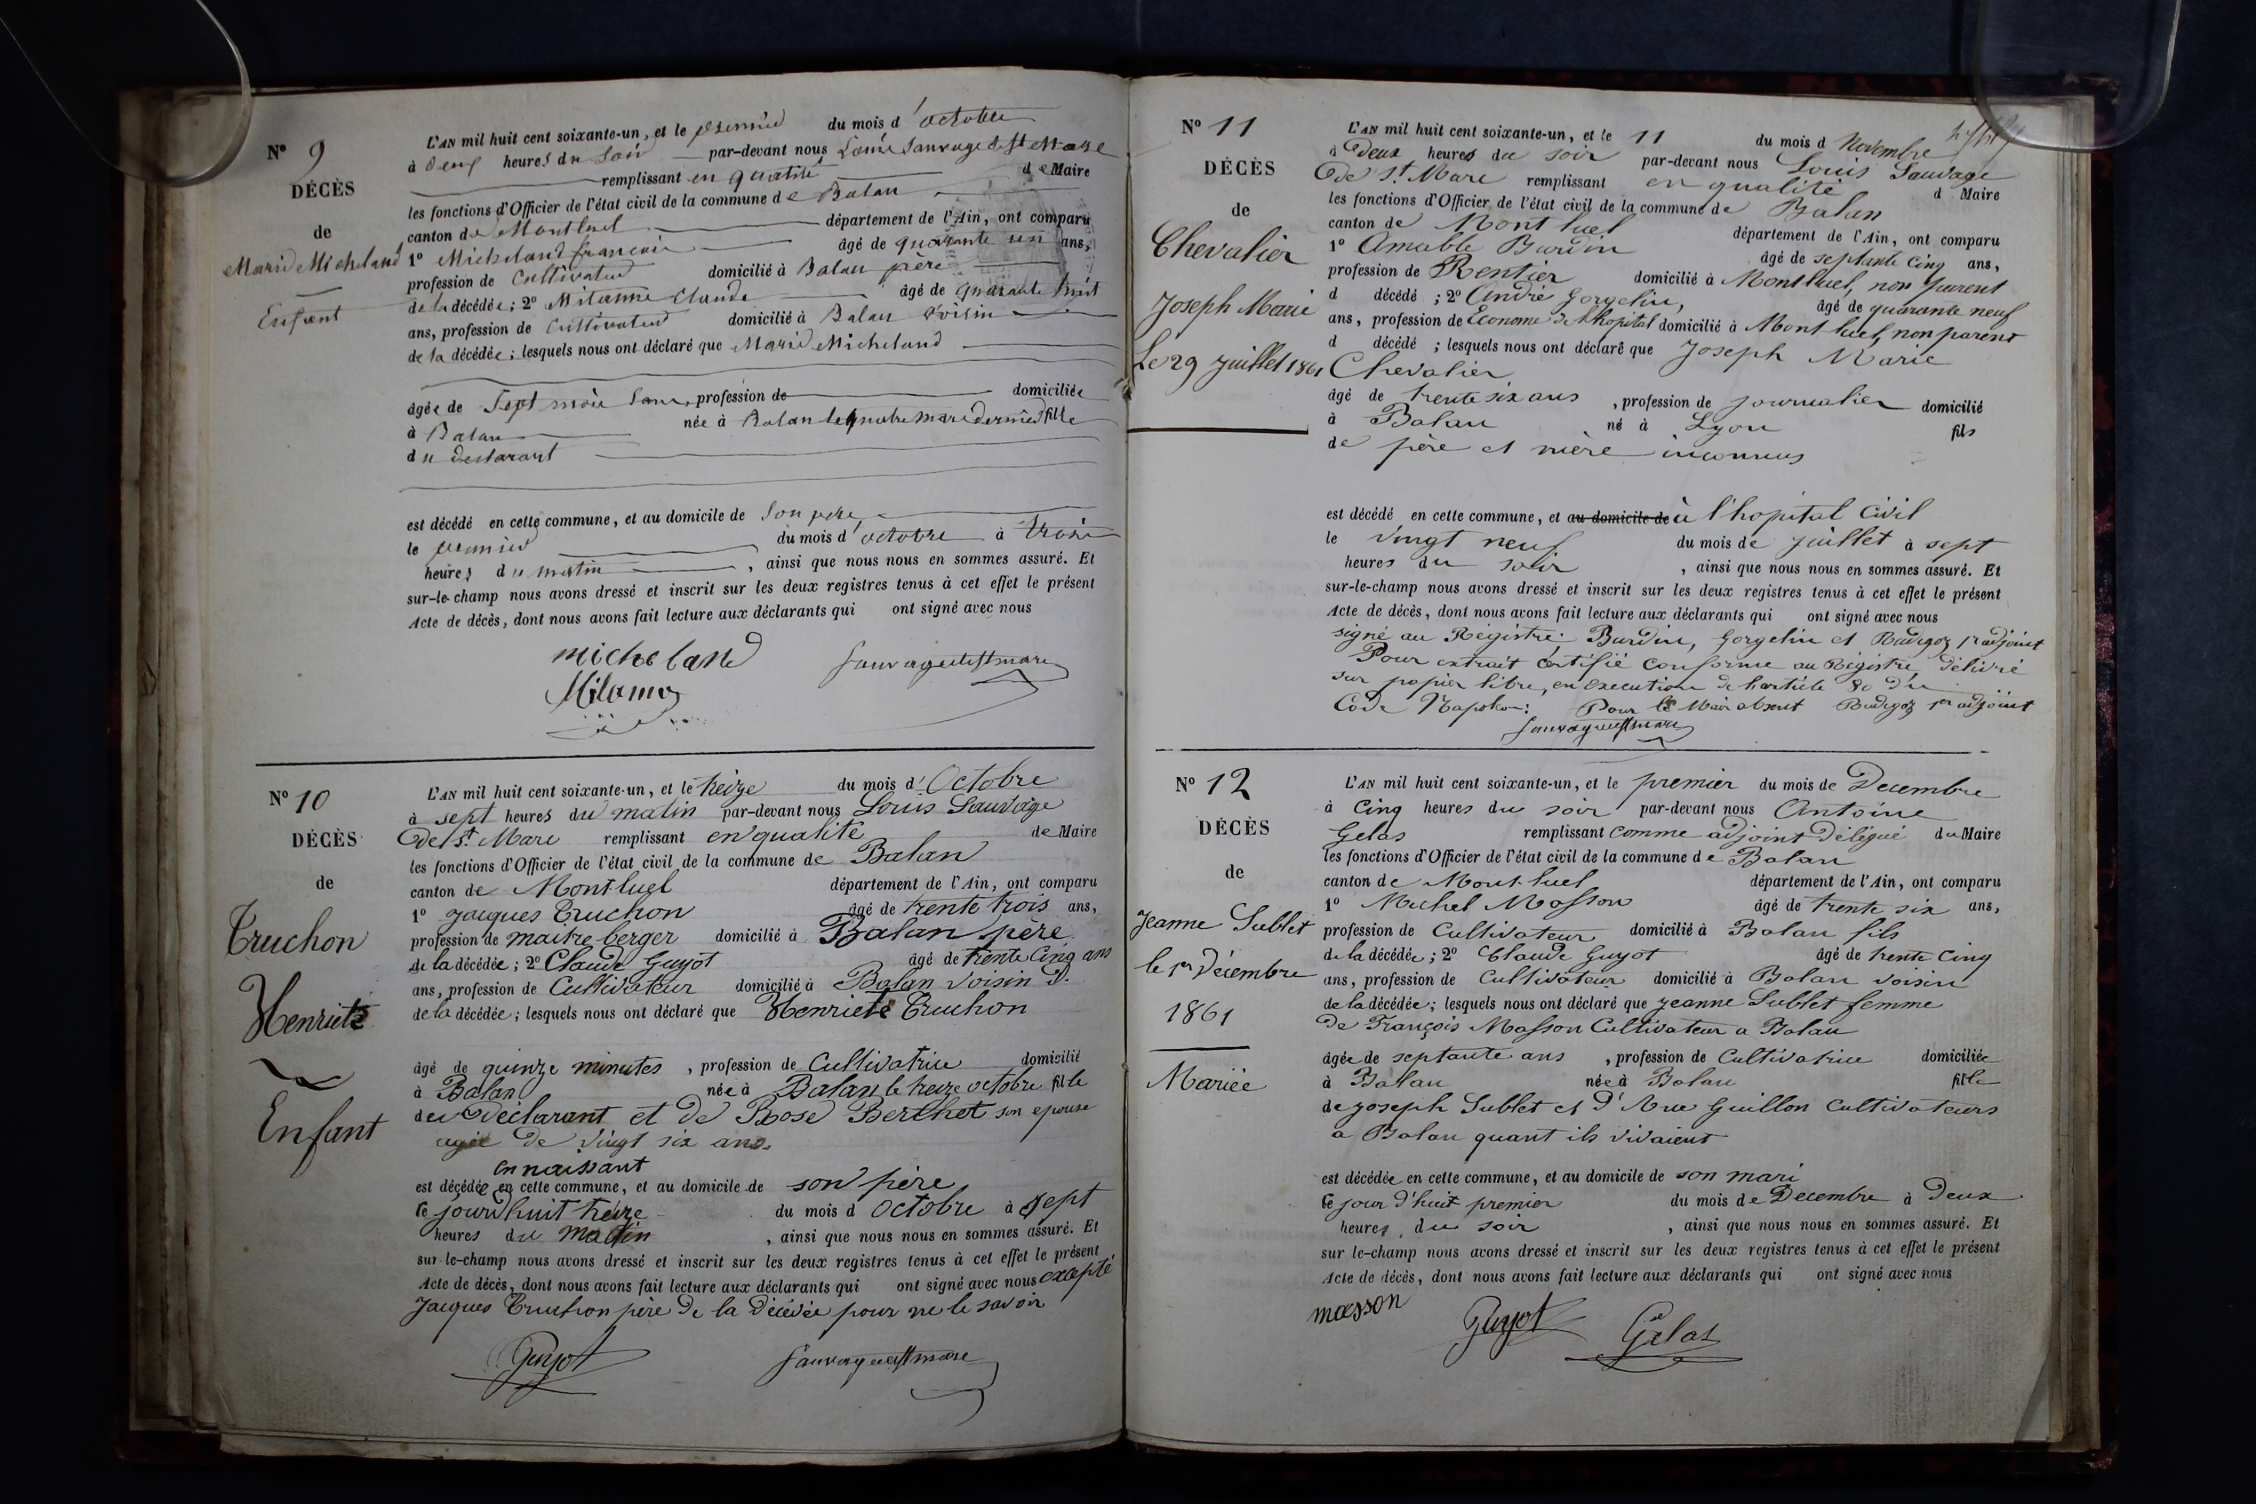 N° 9
DÉCÈS
de
Marie Micheland
Enfant
L'AN mil huit cent soixante-un, et le premier du mois d'octobre
à deux heures du soir par-devant nous Louis Sauvage de St Mare
remplissant en qualité de Maire
les fonctions d'Officier de l'état civil de la commune de Balan
canton de Montluel département de l'Ain, ont comparu
1° Micheland françois âgé de quarante un ans,
profession de Cultivateur domicilié à Balan père
de la décédée; 2° Milamne Claude âgé de quarante huit
ans, profession de Cultivateur domicilié à Balan voisin
de la décédée; lesquels nous ont déclaré que Marie Micheland
âgée de Sept mois sans profession de domiciliée
à Balan née à Balan le quatre mars dernier fille
du declarant
est décédé en cette commune, et au domicile de Son père
le premier du mois d'octobre à trois
heures du matin, ainsi que nous nous en sommes assuré. Et
sur-le-champ nous avons dressé et inscrit sur les deux registres tenus à cet effet le présent
Acte de décès, dont nous avons fait lecture aux déclarants qui ont signé avec nous
micheland Sauvagedestmare
N° 10
DÉCÈS
de
Truchon
Henriete
Enfant
L'AN mil huit cent soixante-un, et le treize du mois d'Octobre
à sept heures du matin par-devant nous Louis Sauvage
De St Mare remplissant en qualité de Maire
les fonctions d'Officier de l'état civil de la commune de Balan
canton de Montluel département de l'Ain, ont comparu
1° Jacques Truchon âgé de trente trois ans,
profession de maitre berger domicilié à Balan père
de la décédée; 2° Claude Guyot âgé de trente Cinq ans
ans, profession de Cultivateur domicilié à Balan voisin D.
de la décédée; lesquels nous ont déclaré que Henriete Truchon
âgé de quinze minutes, profession de Cultivatrice domicilié
à Balan née à Balan le treize octobre fille
du Déclarant et de Rose Berthet son epouse
agée de vingt six ans.
en naissant
est décédée en cette commune, et au domicile de son père
le jourd'huit treize du mois d octobre à sept
heures du matin, ainsi que nous nous en sommes assuré. Et
sur-le-champ nous avons dressé et inscrit sur les deux registres tenus à cet effet le présent
Acte de décès, dont nous avons fait lecture aux déclarants qui ont signé avec nous excepté
Jacques Truchon père de la décédée pour ne le savoir
Guyot Sauvagedestmare
N° 11
DÉCÈS
de
Chevalier
Joseph Marie
Le 29 Juillet 1861
L'AN mil huit cent soixante-un, et le 11 du mois d Novembre
à Deux heures du soir par-devant nous Louis Sauvage
De St Mare remplissant en qualité d Maire
les fonctions d'Officier de l'état civil de la commune de Balan
canton de Montluel département de l'Ain, ont comparu
1° Amable Burdin âgé de septante cinq ans,
profession de Rentier domicilié à Montluel, non parent
d décédé; 2° André Gorgelin, âgé de quarante neuf
ans, profession de Econome de l'hopital domicilié à Montluel, non parent
d décédé; lesquels nous ont déclaré que Joseph Marie
Chevalier
âgé de trente six ans, profession de journalier domicilié
à Balan né à Lyon fils
de père et mère inconnus
est décédé en cette commune, et au domicile de à l'hopital Civil
le vingt neuf du mois de Juillet à sept
heures du soir, ainsi que nous nous en sommes assuré. Et
sur-le-champ nous avons dressé et inscrit sur les deux registres tenus à cet effet le présent
Acte de décès, dont nous avons fait lecture aux déclarants qui ont signé avec nous
signé au Registre: Burdin, Gorgelin et 1er adjoint
Pour extrait certifié conforme au Registre, délivré
sur papier libre, en execution de l'article 80 du
Code Napoleon: Pour le Maire absent 1er adjoint
Sauvagedestmare
N° 12
DÉCÈS
de
Jeanne Sublet
le 1er Décembre
1861
Mariée
L'AN mil huit cent soixante-un, et le premier du mois de Decembre
à Cinq heures du soir par-devant nous Antoine
Gelas remplissant comme adjoint Délégué du Maire
les fonctions d'Officier de l'état civil de la commune de Balan
canton de Mont-luel département de l'Ain, ont comparu
1° Michel Masson âgé de trente six ans,
profession de Cultivateur domicilié à Balan fils
de la décédée; 2° Claude Guyot âgé de trente cinq
ans, profession de Cultivateur domicilié à Balan voisin
de la décédée; lesquels nous ont déclaré que Jeanne Sublet femme
de François Masson Cultivateur a Balan
âgée de septante ans, profession de Cultivatrice domiciliée
à Balan née à Balan fille
de Joseph Sublet et d'Anne Guillon Cultivateurs
a Balan quant ils vivaient
est décédée en cette commune, et au domicile de son mari
le jour d'huit premier du mois de Decembre à Deux
heures du soir, ainsi que nous nous en sommes assuré. Et
sur le-champ nous avons dressé et inscrit sur les deux registres tenus à cet effet le présent
Acte de décès, dont nous avons fait lecture aux déclarants qui ont signé avec nous
masson Guyot Gelas